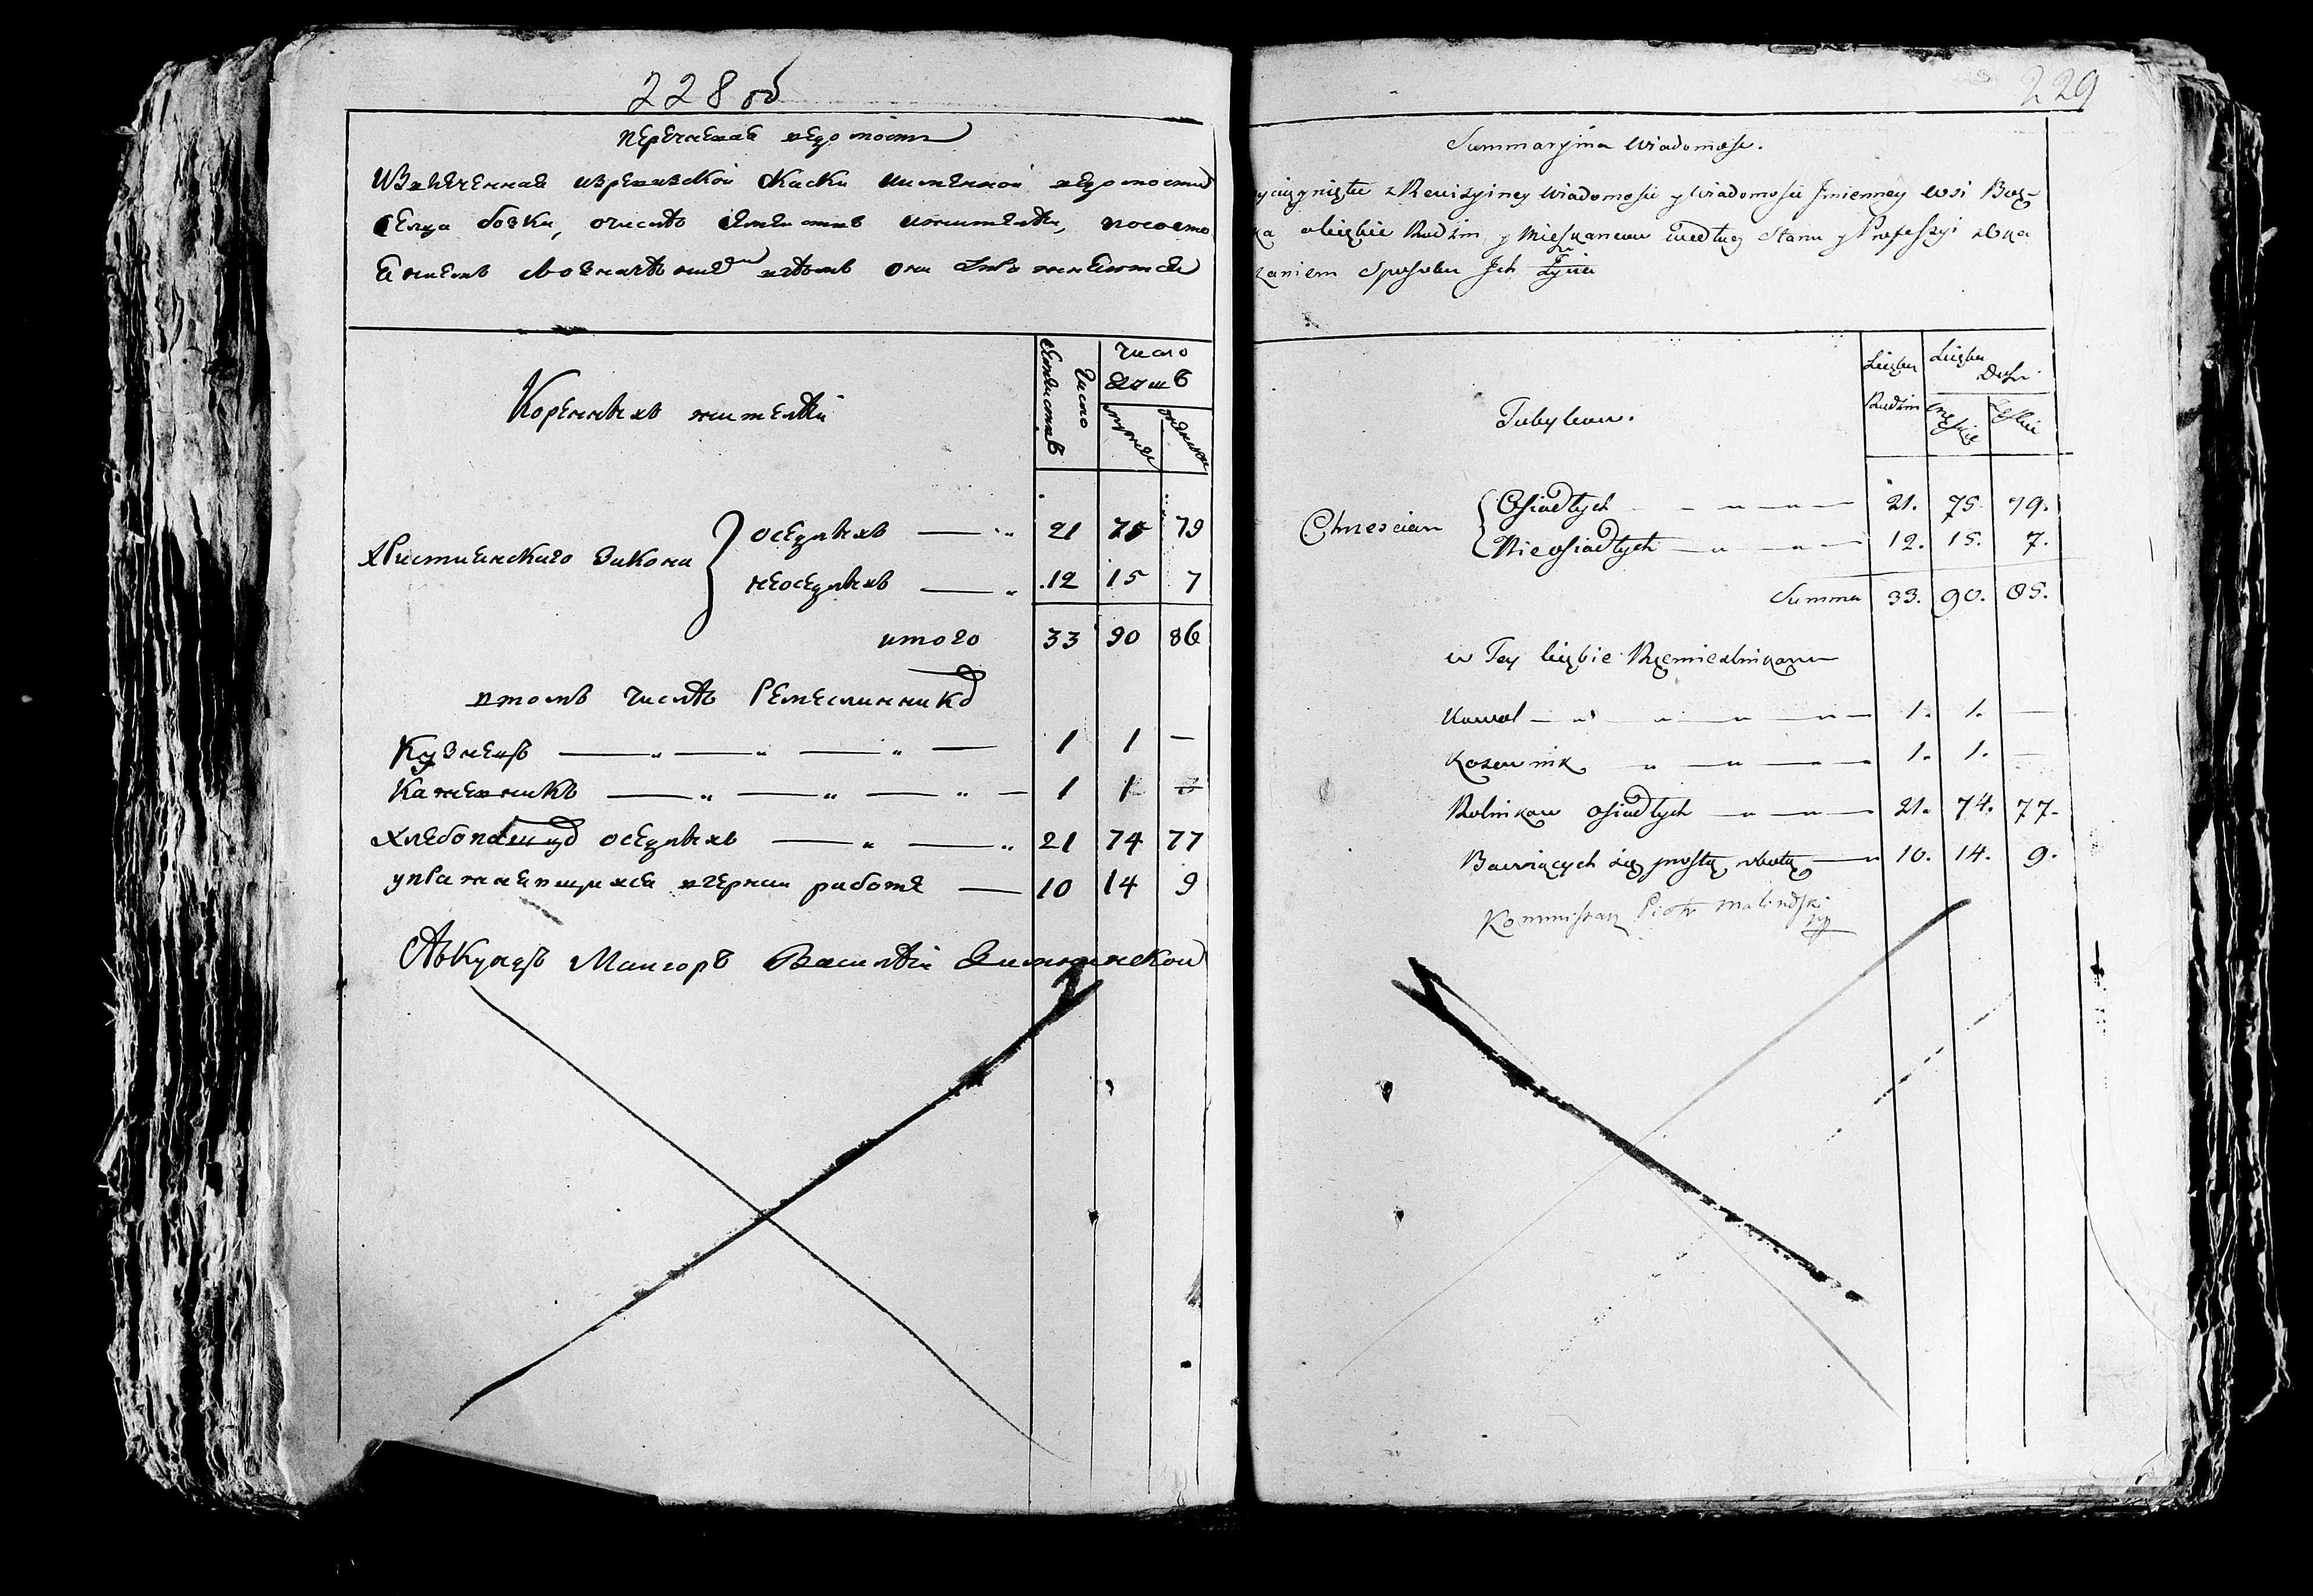 228 об
Перечневая ведомость
Извлеченная из ревизской скаски именной ведомости
сельца бозки, о числе семейств и жителей, по состо
янием Собозначением чем они
Коренныхъ жителей
число семействъ
число душъ
мужеска
женска
христианского Закона
оседлыхъ — 21 75 79
неоседлыхъ — 12 15 7
итого 33 90 86
втомъ числе Ремеслинников
Кузнецъ — 1 1 —
Кажевникъ — 1 1
хлебопашцов оседлыхъ — 21 74 77
упражняющихся вчерной работе — 10 14 9
Секундъ Маиоръ Василей
229
Summaryina Wiadomość.
yciągnięta z Rewizyiney Wiadomości y Wiadomości Imienney wsi Boz-
ka o liczbie Rodzin y Mieszkancow według Stanu y Professyi z Oka
zaniem Sposobu Ich Życia
Tubylcow.
Liczba Rodzin
Liczba Dusz
męskie
żeskie
Chrescian
Osiadłych — 21. 75. 79.
Nieosiadłych — 12. 15. 7.
Summa 33. 90. 86.
w Tey liczbie Rzemieslnikow
Kowal — 1. 1. —
Kozewnik — 1. 1. —
Rolnikow osiadłych — 21. 74. 77.
Bawiących się prostą robotą — 10. 14. 9.
Kommisarz Piotr Malindski